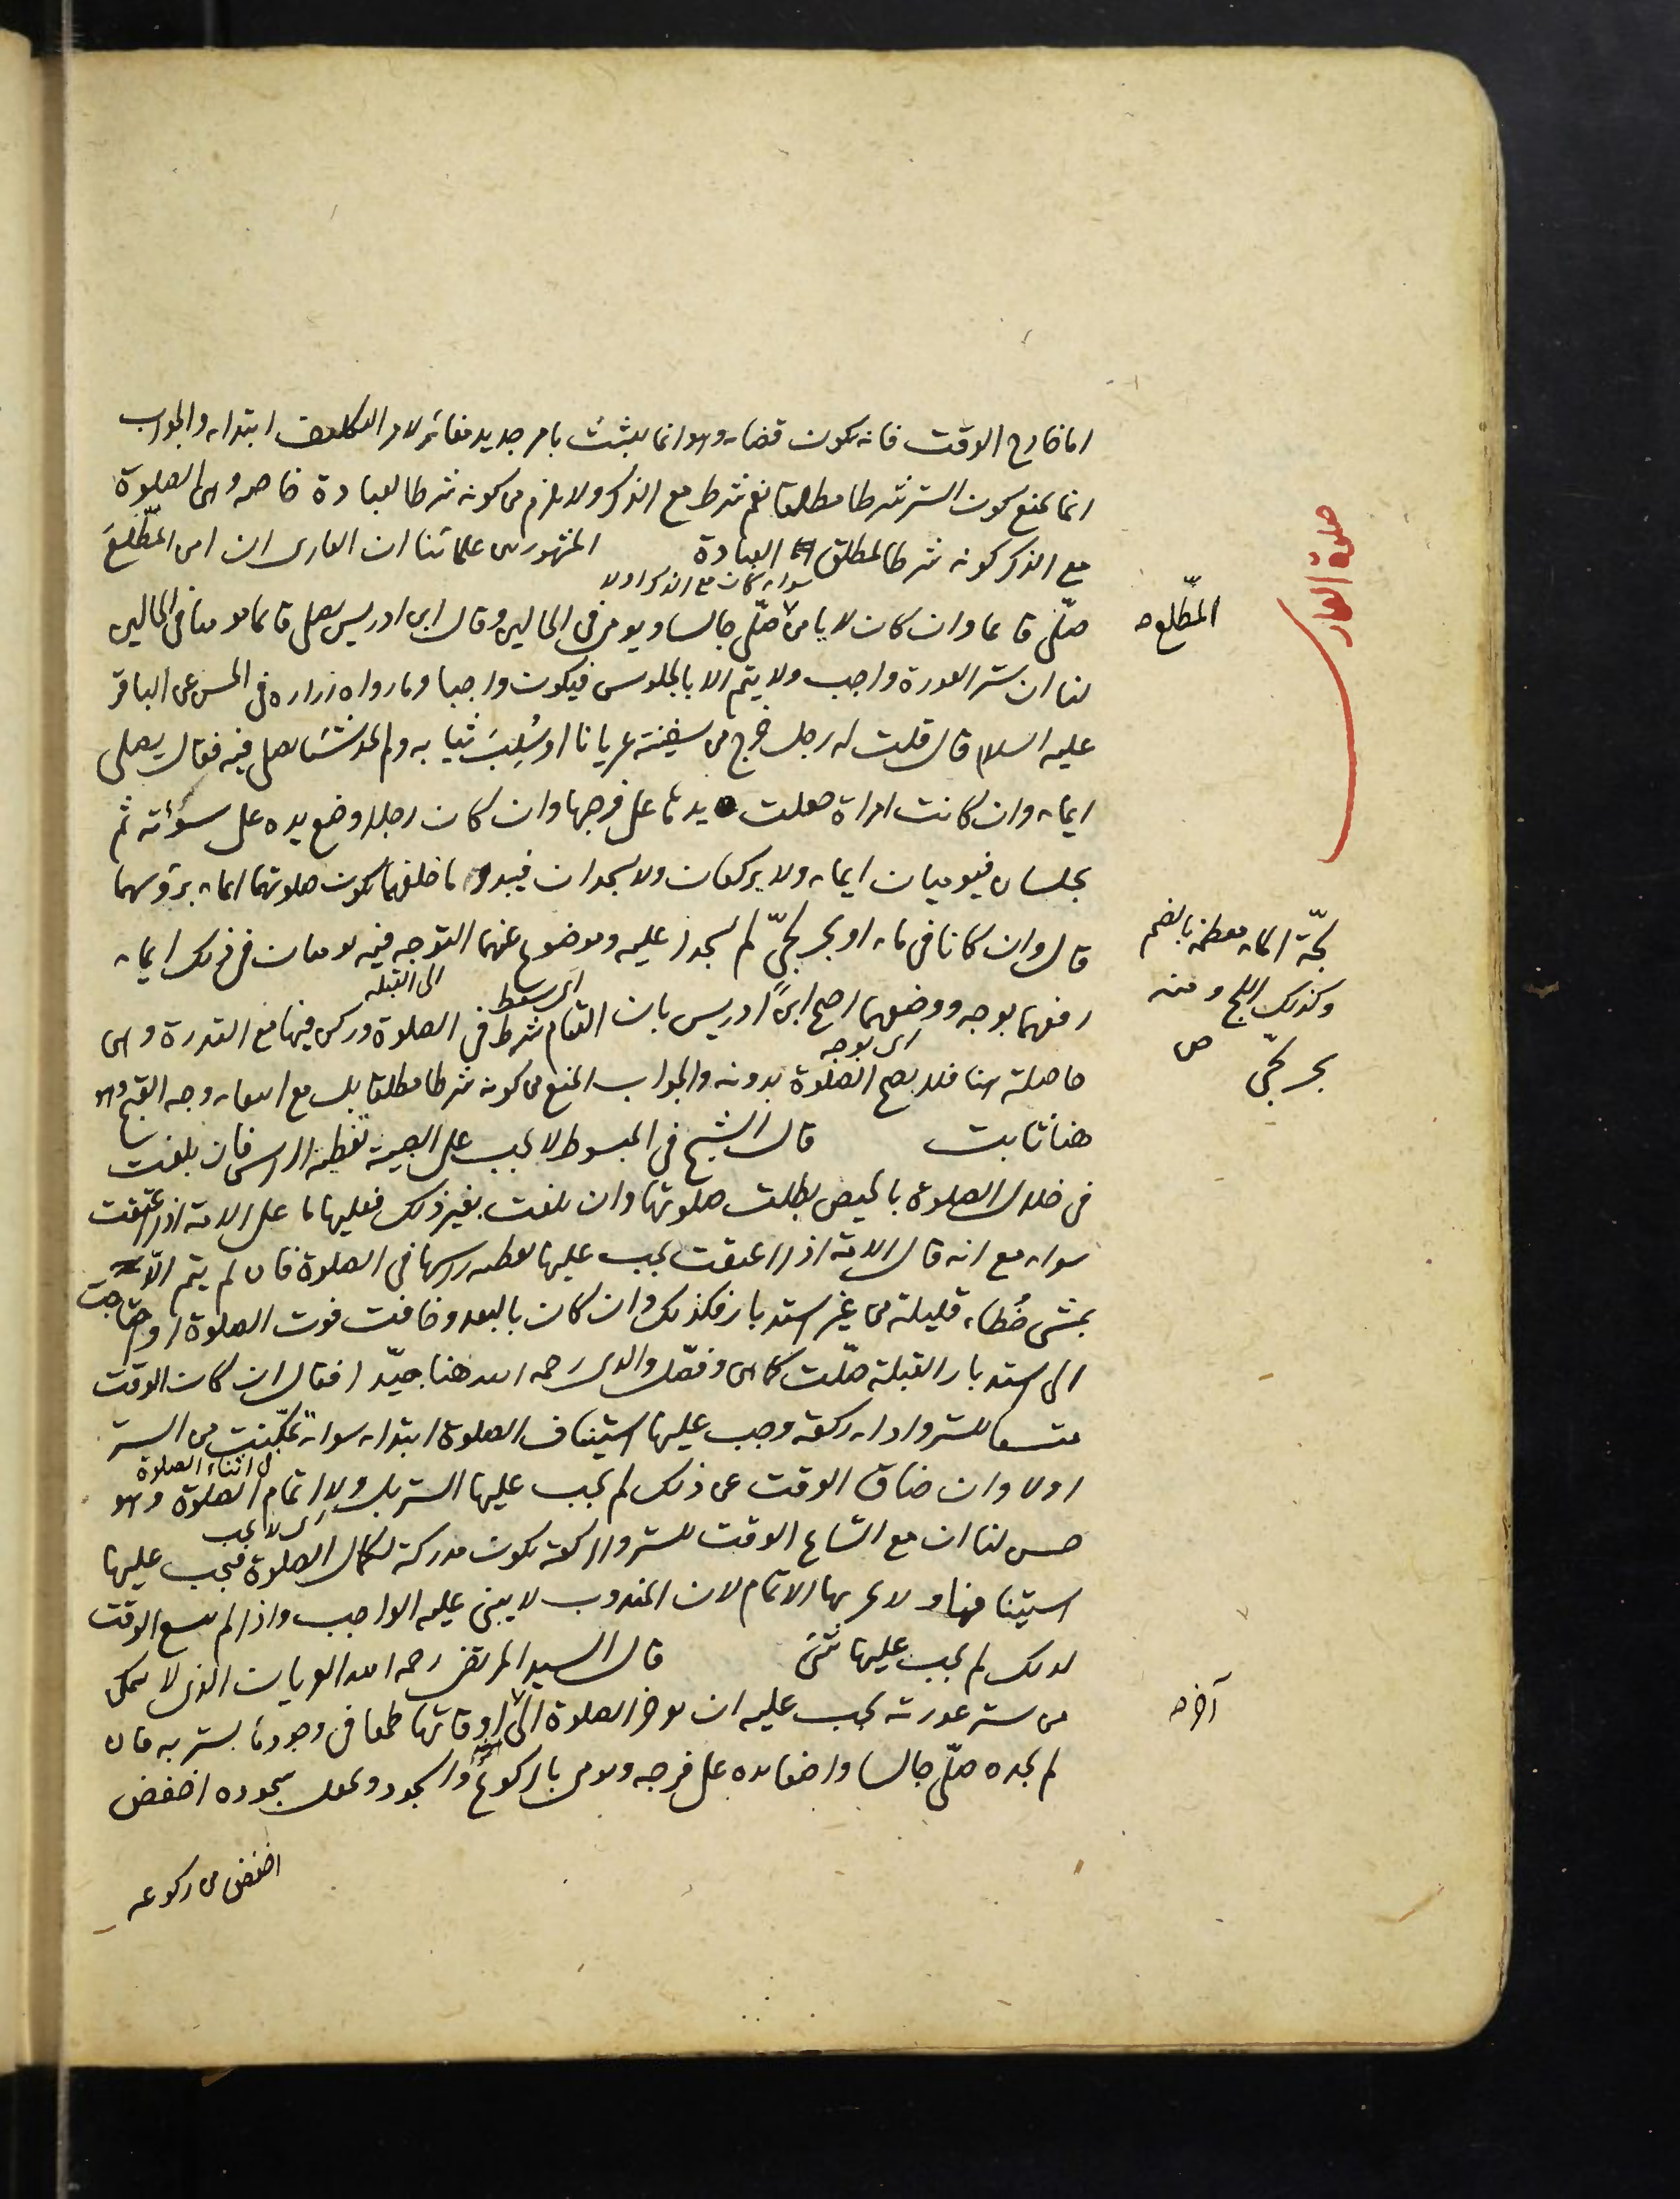 اما خارج الوقت فانه يكون قضاء وهو انما يثبت بامر جديد مغاير لامر التكليف ابتداء والجواب
انما يمنع كون الستر شرطا مطلقا نعم شرط مع الذكر ولا يلزم من كونه شرطا لعبادة خاصة وهى الصلوة
مع الذكر كونه شرطا لمطلق العبادة المشهور بين علمائنا ان العارى ان امن المطّلعَ
سواء كان مع الذكر او لا
المطّلع
صلوة العار
صلّى قائما وان كان لا يامن صلّى جالسا ويومى فى الحالين وقال ابن ادريس يصلى قائما مومئا فى الحالين
لنا ان ستر العورة واجب ولا يتم الا بالجلوس فيكون واجبا وما رواه زرارة فى الحسن عن الباقر
عليه السلام قال قلت له رجل خرج من سفينة عريانا او سُلِبَ ثيابه ولم يجد شيئا يصلى فيه فقال يصلى
ايماء وان كانت امراة جعلت يدها على فرجها وان كان رجلا وضع يده على سوأته ثم
يجلسان فيوميان ايماء ولا يركعان ولا يسجدان فيبدو ما خلفهما تكون صلوتهما ايماء برؤسهما
قال وان كانا فى ماء او بحر لجّىّ لم يسجدا عليه وموضوع عنهما التوجه فيه يوميان فى ذلك ايماء
لجّة الماء معظمه بالضم
وكذلك اللج ومنه
بحر لجّىّ ص
اى يسقط الى القبلة
رفعهما بوجه ووضعهما احتج ابن ادريس بان القيام شرط فى الصلوة وركن فيها مع القدرة وهى
اى بوجه
حاصلة هنا فلا يصح الصلوة بدونه والجواب المنع من كونه شرطا مطلقا بل مع انتفاء وجه القبح وهو
هنا ثابت قال الشيخ فى المبسوط لا يجب على الصبية تغطية الراس فان بلغت
فى خلال الصلوة بالحيض بطلت صلوتها وان بلغت بغير ذلك فعليها ما على الامة اذا اعتقت
سواء مع انه قال الامة اذا اعتقت يجب عليها تغطية راسها فى الصلوة فان لم يتم الّا
بمشى خُطاء قليلة من غير استدبار فكذلك وان كان بالبعد وخافت فوت الصلوة او احتاجت
الى استدبار القبلة صلّت كما هى وفصّل والدى رحمه الله هنا جيّدا فقال ان كان الوقت
متسعا للستر واداء ركعة وجب عليها استيناف الصلوة ابتداء سواء تمكّنت من الستر
فى اثناء الصلوة
او لا وان ضاق الوقت عن ذلك لم يجب عليها الستر بل ولا اتمام الصلوة وهو
اى لا يجب
حسن لنا ان مع اتساع الوقت للستر والركعة تكون مدركة لكمال الصلوة فيجب عليها
استينافها ولا يجزيها الاتمام لان المندوب لا يبنى عليه الواجب واذا لم يتسع الوقت
لذلك لم يجب عليها شئ قال السيد المرتضى رحمه الله العريان الذى لا يتمكن
من ستر عورته يجب عليه ان يوخر الصلوة الى اوقاتها طمعا فى وجود ما يستر به فان
آخر
لم يجده صلّى جالسا واضعا يده على فرجه ويومى بالركوع والسجود ويجعل سجوده اخفض
اخفض من ركوعه